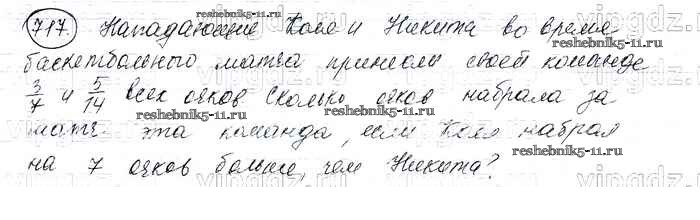 717. Нападающие Коля и Никита во время
reshebnik5-11.ru
баскетбольного матча принесли своей команде
3/7 и 5/14 всех очков Сколько очков набрала за
reshebnik5-11.ru
матч эта команда, если Коля набрал
на 7 очков больше, чем Никита?
reshebnik5-11.ru
vingdz.ru